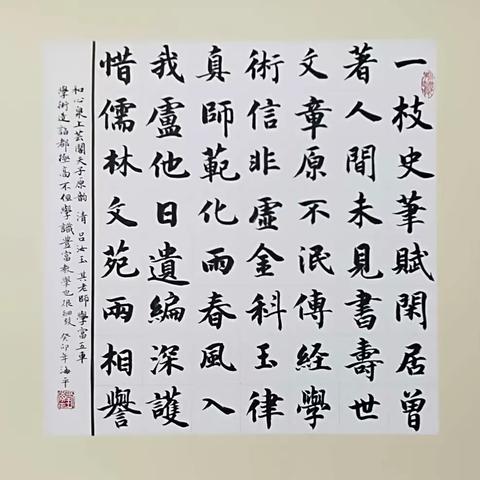 一枝史筆賦閑居曾
著人間未見書壽世
文章原不泯傳經學
術信非虛金科玉律
真師範化雨春風入
我廬他日遺編深護
惜儒林文苑兩相譽
和心泉上芸閣夫子原韵 清 呂汝玉 其老師學富五車
學術造詣都極高不但學識豐富教學也很細緻 癸卯年海平